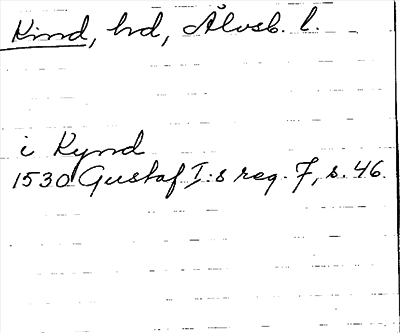 Kind, hd, Älvsb. l.
i Kynd
1530 Gustaf I:s reg. 7, s. 46.